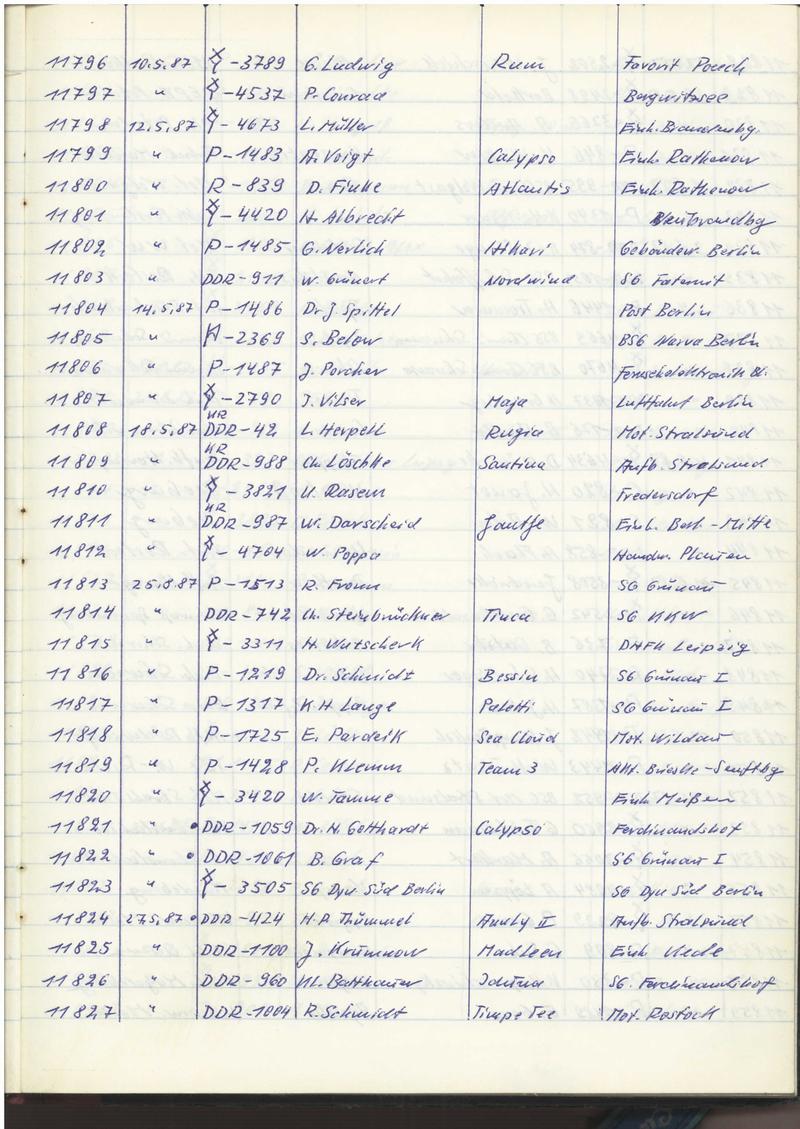 11796 10.5.87 Y-3789 G. Ludwig Rum Favorit
11797 " Y-4537 P. Conrad Bergwitzsee
11798 12.5.87 Y-4673 L. Müller Einh. Brandenbg.
11799 " P-1483 A. Voigt Calypso Einh. Rathenow
11800 " R-839 D. Finke Atlantis Einh. Rathenow
11801 " Y-4420 H. Albrecht Neubrandbg
11802 " P-1485 G. Nerlich Gebäudew. Berlin
11803 " DDR-911 W. Grünert Nordwind SG
11804 14.5.87 P-1486 Dr. J. Spittel Post Berlin
11805 " H-2369 S. Below BSG Narva Berlin
11806 " P-1487 J. Porcher Fernsehelektronik
11807 " Y-2790 Maja Luftfahrt Berlin
11808 18.5.87 KR DDR-42 L. Herpell Rugia Mot. Stralsund
11809 " KR DDR-988 Ch. Löschke Santina Aufb. Stralsund
11810 " Y-3821 U. Fredersdorf
11811 " KR DDR-987 W. Darscheid Jantje Einh. Berl.-Mitte
11812 " Y-4704 W. Poppa Handw.
11813 25.8.87 P-1513 R. Fromm SG Grünau
11814 " DDR-742 Ch. Steinbrückner Tinca SG KKW
11815 " Y-3311 H. Wutscherk DHFK Leipzig
11816 " P-1219 Dr. Schmidt Bessin SG Grünau I
11817 " P-1317 K.H. Lange Paletti SG Grünau I
11818 " P-1725 E. Pardeik Sea Cloud Mot. Wildau
11819 " P-1428 P. Klemm Team 3 Akt. Brieske-Senftbg
11820 " Y-3420 W. Tamme Einh. Meißen
11821 " • DDR-1059 Dr. H. Gotthardt Calypso Ferdinandshof
11822 " • DDR-1061 B. Graf SG Grünau I
11823 " Y-3505 SG Dyn Süd Berlin SG Dyn Süd Berlin
11824 27.5.87 • DDR-424 H.P. Thümmel II Aufb. Stralsund
11825 " DDR-1100 J. Krumnow Madleen Einh.
11826 " DDR-960 Kl. SG. Ferdinandshof
11827 " DDR-1004 R. Schmidt Timpe Tee Mot. Rostock